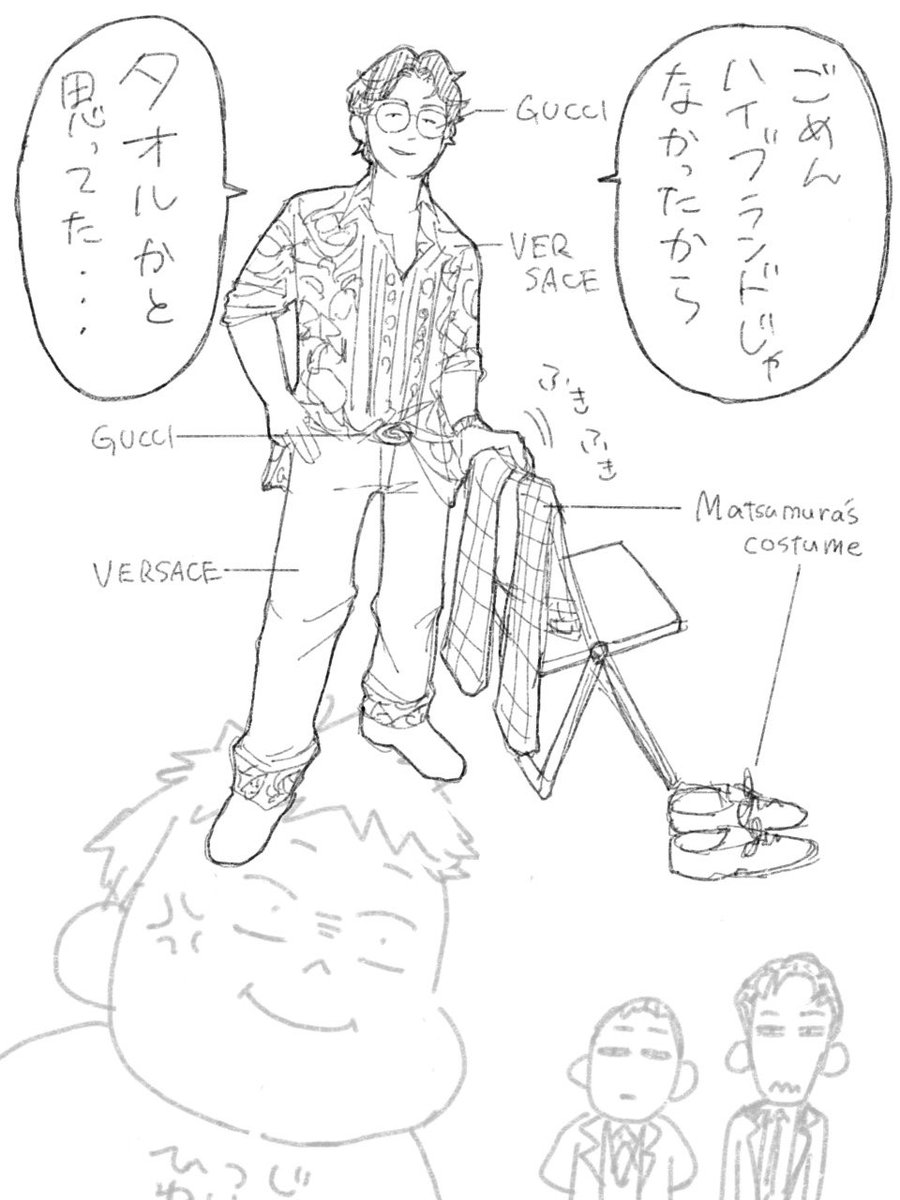 ごめん
ハイブランドじゃ
なかったから
タオルかと
思ってた・・・
GUCCI
VER
SACE
GUCCI
VERSACE
ふき
ふき
Matsumura's
costume
ひつじ